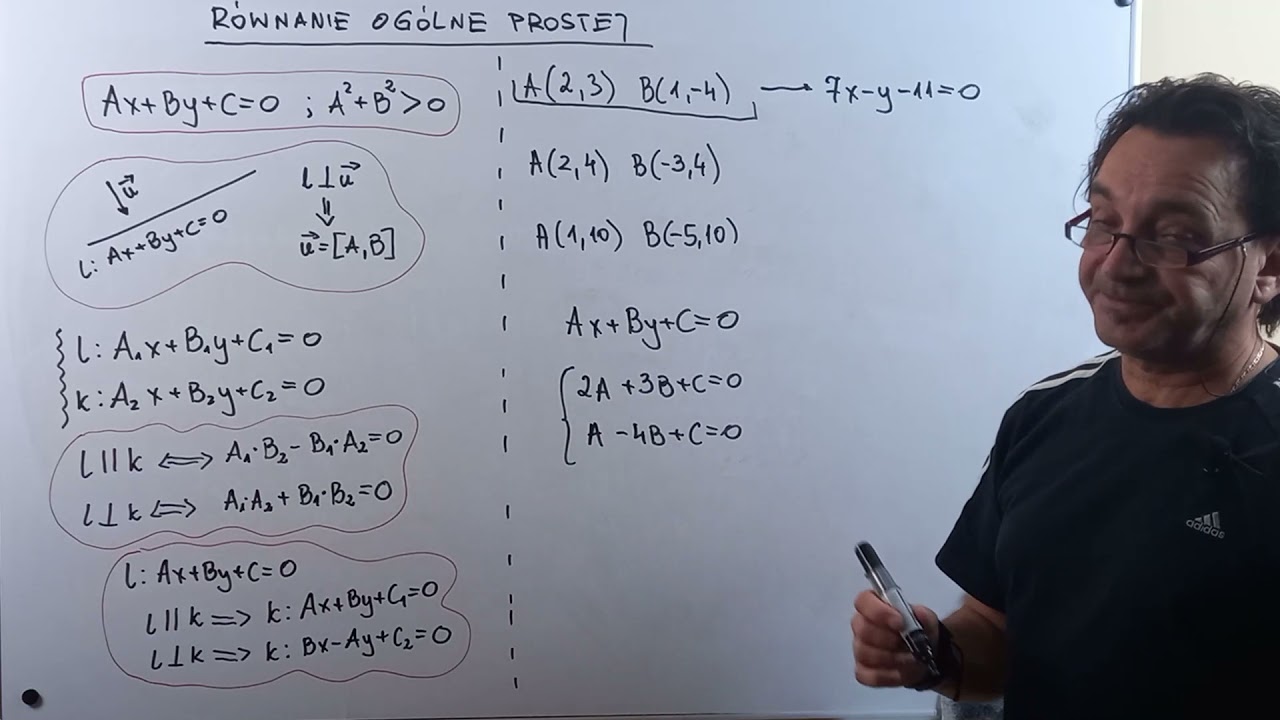 RÓWNANIE OGÓLNE PROSTEJ
Ax+By+C=0 ; A²+B²>0
u⃗
l: Ax+By+C=0
l⊥u⃗
⇓
u⃗=[A,B]
l: A₁x+B₁y+C₁=0
k: A₂x+B₂y+C₂=0
l||k ⇔ A₁·B₂-B₁·A₂=0
l⊥k ⇔ A₁·A₂+B₁·B₂=0
l: Ax+By+C=0
l||k ⇒ k: Ax+By+C₁=0
l⊥k ⇒ k: Bx-Ay+C₂=0
A(2,3) B(1,-4) → 7x-y-11=0
A(2,4) B(-3,4)
A(1,10) B(-5,10)
Ax+By+C=0
2A+3B+C=0
A-4B+C=0
adidas